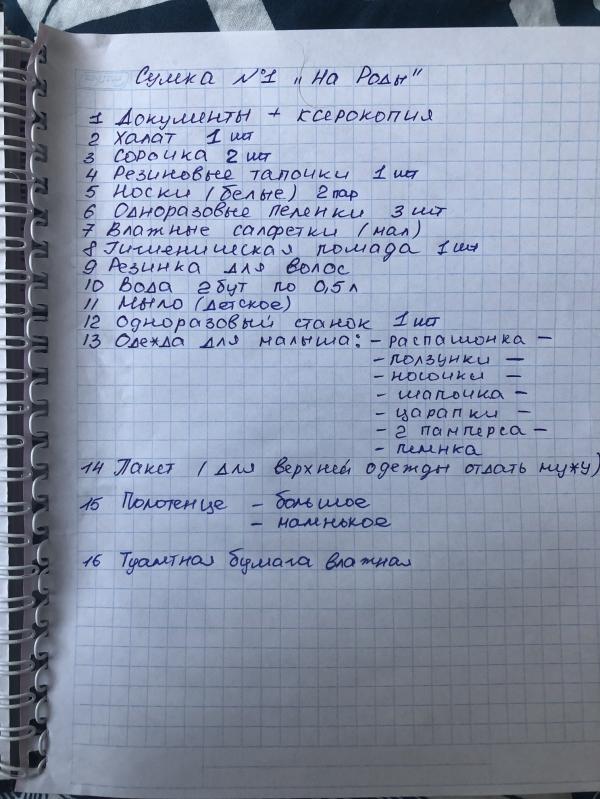 Сумка №1 „на Роды"
1 Документы + ксерокопия
2 Халат 1 шт
3 Сорочка 2 шт
4 Резиновые тапочки 1 шт
5 Носки (белые) 2 пар
6 Одноразовые пеленки 3 шт
7 Влажные салфетки (мал)
8 Гигиеническая помада 1 шт
9 Резинка для волос
10 Вода 2 бут по 0,5 л
11 Мыло (детское)
12 Одноразовый станок 1 шт
13 Одежда для малыша: - распашонка -
- ползунки -
- носочки -
- шапочка -
- царапки -
- 2 памперса -
- пеленка
14 Пакет (для верхней одежды отдать мужу)
15 Полотенце - большое
- маленькое
16 Туалетная бумага влажная